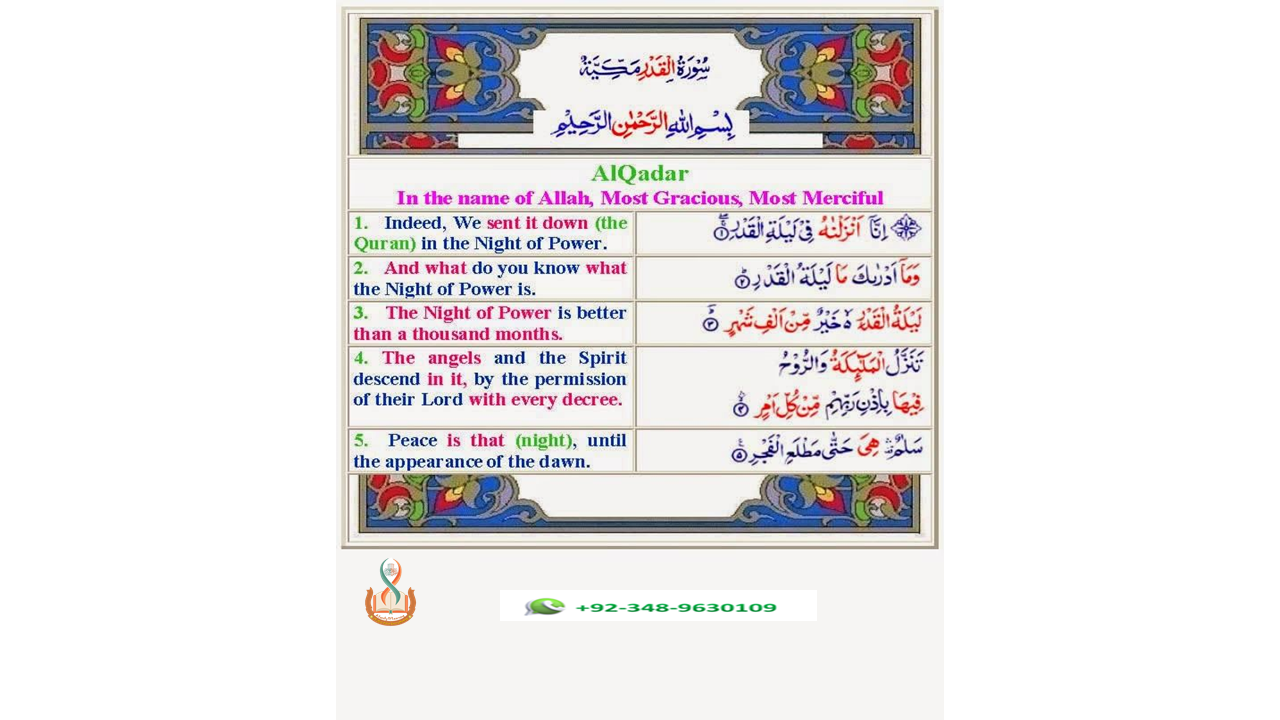 سُوْرَةُ الْقَدْرِ مَكِّيَّةٌ
بِسْمِ اللهِ الرَّحْمٰنِ الرَّحِيْمِ
AlQadar
In the name of Allah, Most Gracious, Most Merciful
1. Indeed, We sent it down (the
Quran) in the Night of Power.
اِنَّاۤ اَنْزَلْنٰهُ فِيْ لَيْلَةِ الْقَدْرِ ۚۖ ۱
2. And what do you know what
the Night of Power is.
وَمَاۤ اَدْرٰىكَ مَا لَيْلَةُ الْقَدْرِ ۲
3. The Night of Power is better
than a thousand months.
لَيْلَةُ الْقَدْرِ ەۙ خَيْرٌ مِّنْ اَلْفِ شَهْرٍ ۳
4. The angels and the Spirit
descend in it, by the permission
of their Lord with every decree.
تَنَزَّلُ الْمَلٰٓئِكَةُ وَالرُّوْحُ
فِيْهَا بِاِذْنِ رَبِّهِمْ مِّنْ كُلِّ اَمْرٍ ۴
5. Peace is that (night), until
the appearance of the dawn.
سَلٰمٌ هِيَ حَتّٰى مَطْلَعِ الْفَجْرِ ۵
+92-348-9630109